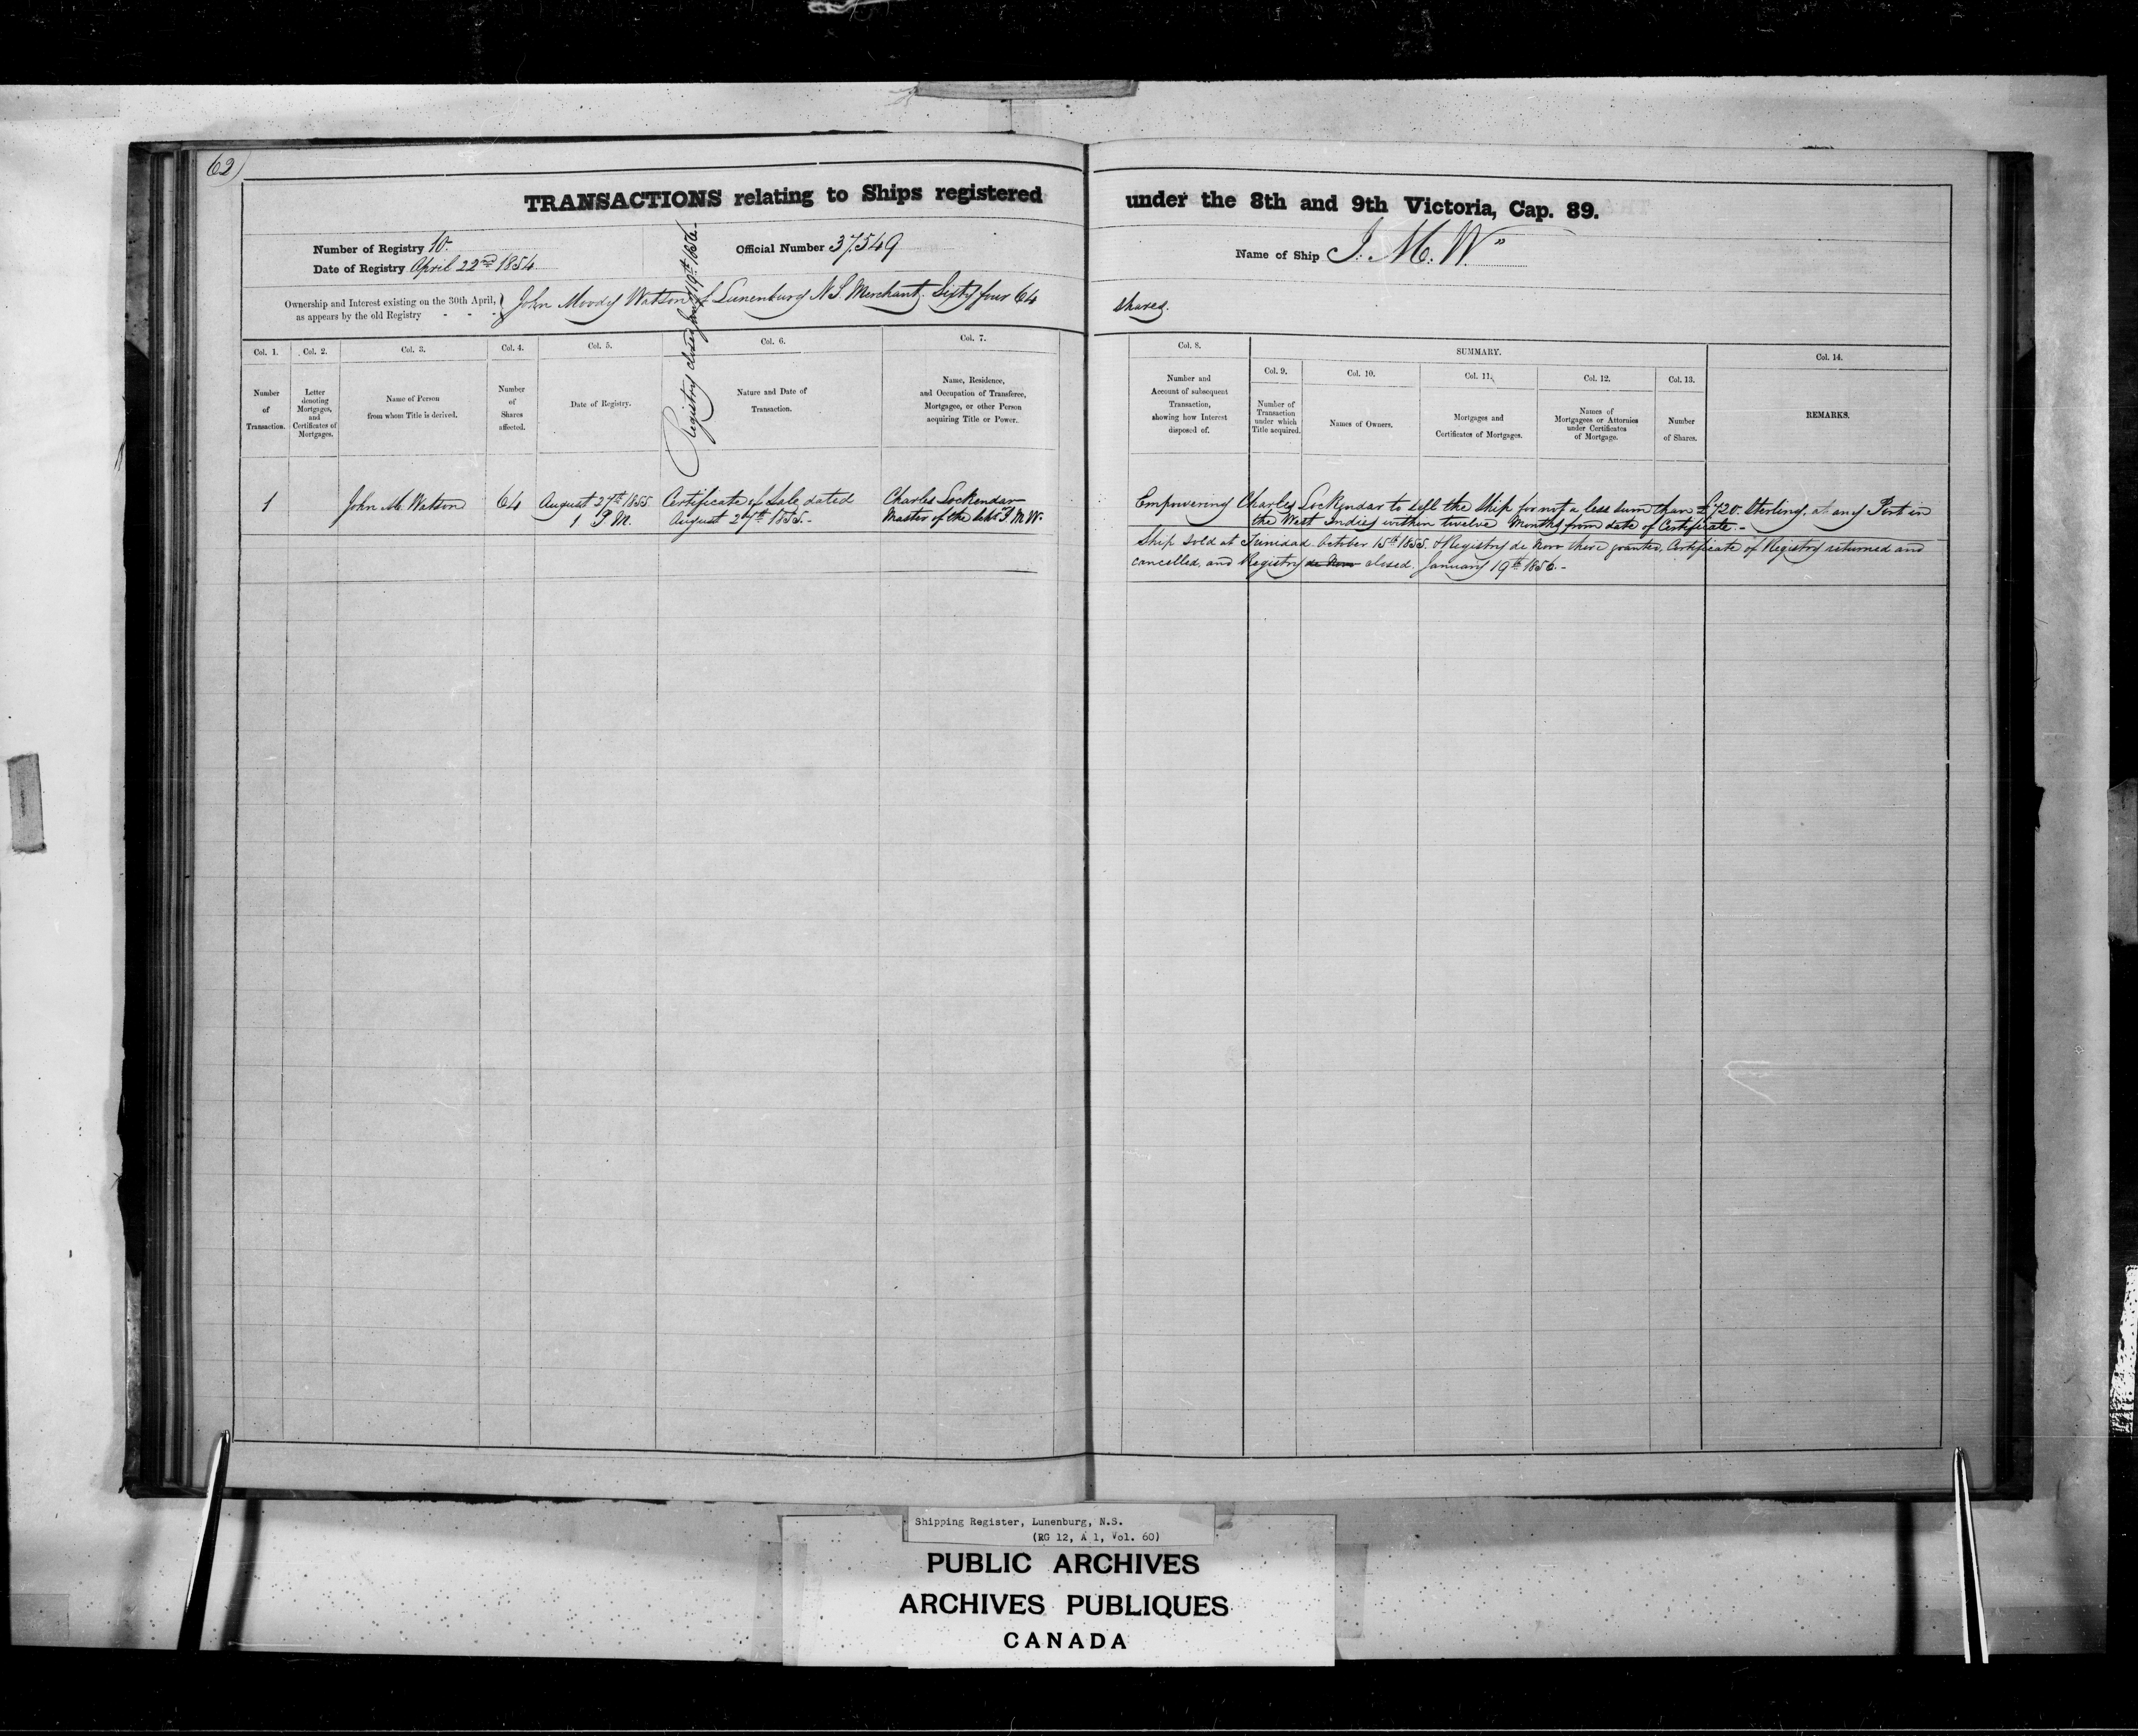 62)
TRANSACTIONS relating to Ships registered under the 8th and 9th Victoria, Cap. 89.
Number of Registry 10.
Date of Registry April 22nd 1854.
Official Number 37.549
Name of Ship J. M. W.
Registry closed Jany 19th 1856.
Ownership and Interest existing on the 30th April, as appears by the old Registry - - -
John Moody Watson of Lunenburg N S Merchant. Sixty four 64 shares.
Col. 1. Col. 2. Col. 3. Col. 4. Col. 5. Col. 6. Col. 7.
Number of Transaction.
Letter denoting Mortgages, and Certificates of Mortgages.
Name of Person from whom Title is derived.
Number of Shares affected.
Date of Registry.
Nature and Date of Transaction.
Name, Residence, and Occupation of Transferee, Mortgagee, or other Person acquiring Title or Power.
Col. 8. SUMMARY. Col. 14.
Col. 9. Col. 10. Col. 11. Col. 12. Col. 13.
Number and Account of subsequent Transaction, showing how Interest disposed of.
Number of Transaction under which Title acquired.
Names of Owners.
Mortgages and Certificates of Mortgages.
Names of Mortgagees or Attornies under Certificates of Mortgage.
Number of Shares.
REMARKS.
1 John M. Watson 64 August 27th 1855. Certificate of Sale dated Charles Lockendar
1 P M. August 27th 1855.- Master of the Schr J M W.
Empowering Charles Lockendar to sell the Ship for not a less sum than £720. Sterling. at any Port in
the West Indies within twelve Months from date of Certificate.-
Ship sold at Trinidad October 15th 1855. & Registry de Novo there granted. Certificate of Registry returned and
cancelled, and Registry de Novo closed. January 19th 1856.-
Shipping Register, Lunenburg, N.S.
(RG 12, A 1, Vol. 60)
PUBLIC ARCHIVES
ARCHIVES PUBLIQUES
CANADA